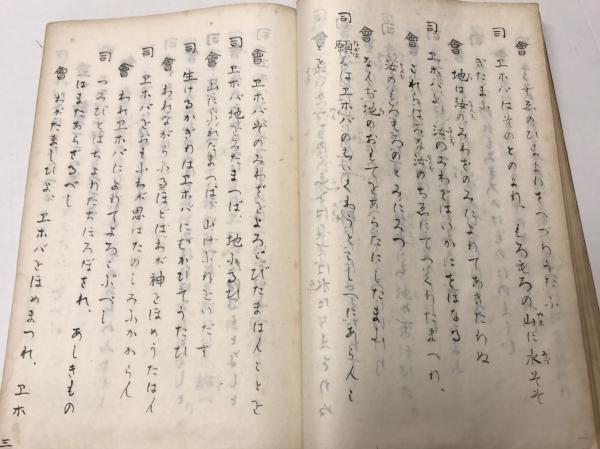 會 こずゑのひまよりさへづりうたふ
司 ヱホバはそのとのより、もろもろの山に水そそ
ぎたまふ
地は汝のみわざのみによりてあきたりぬ
會 ヱホバよ、汝のみわざはいかにさはなる
司 これらはみな汝のちゑにてつくりたまへり、
會 汝のもろもろのとみにみつ
なんぢ地のおもてをあらたにしたまふ
司 願くはヱホバのえいくわうとこしへにあらんこ
會 ヱホバそのみわざをよろこびたまはんことを
司 ヱホバ地をみたまへば、地ふるひ
會 山にふれたまへば、山けぶりをいだす
司 生けるかぎりはヱホバにむかひてうたひ
會 われながらふるほどはわが神をほめうたはん
司 ヱホバをおもふわが思はたのしみふかからん
會 われヱホバによりてよろこぶべし
司 つみびとはちよりたちほろぼされ、あしきもの
はまたあらざるべし
會 わがたましひよ、ヱホバをほめまつれ、ヱホ
三